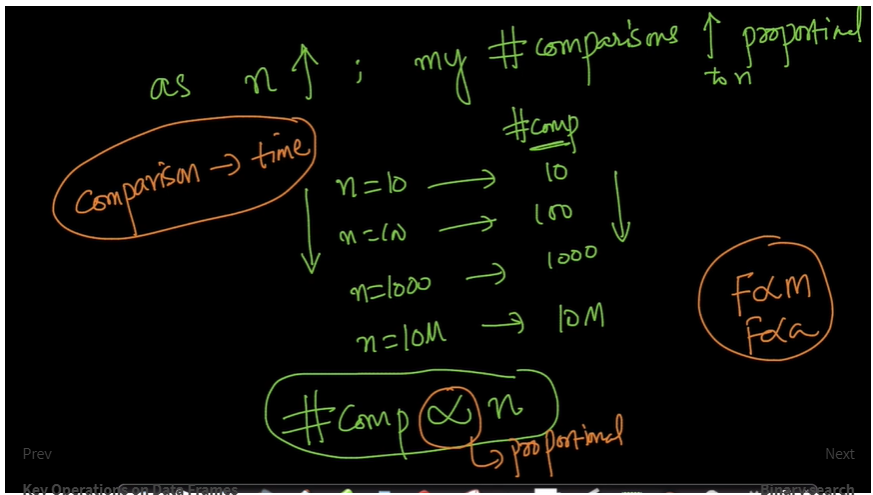 as n ↑ ; my #comparisons ↑ proportinal
to n
Comparison → time
#comp
n=10 → 10
n=100 → 100
n=1000 → 1000
n=10M → 10M
F∝m
F∝a
#Comp ∝ n
→ proportional
Prev
Next
Key Operations on Data Frames
Binary search